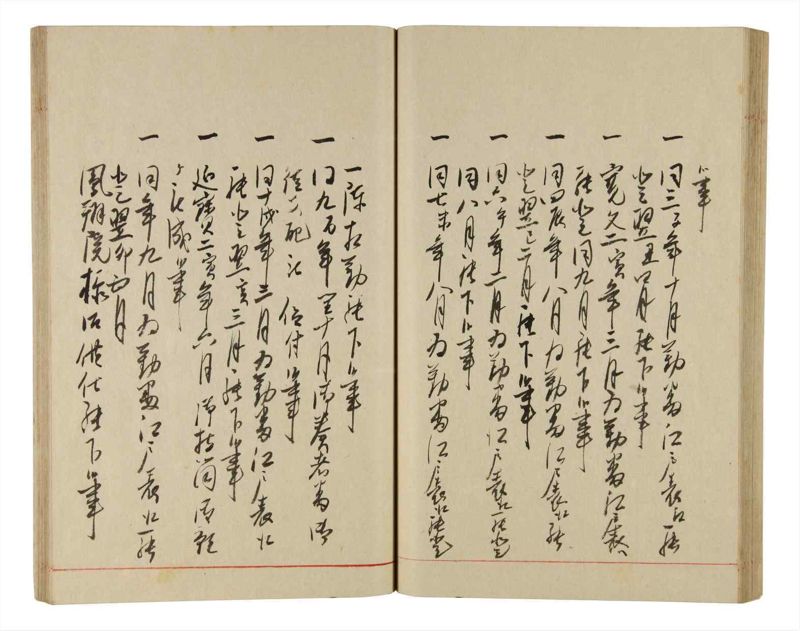 候事
一 同三子年十月勤番江戸表江罷
登翌丑四月罷下候事
一 寛文二寅年三月為勤番江戸表江
罷登同九月罷下候事
一 同四辰年八月為勤番江戸表江罷
登翌巳二月罷下候事
一 同六午年二月為勤番江戸表江罷登
同八月罷下候事
一 同七未年八月為勤番江戸表江罷登
相勤罷下候事
一 同九酉年 十月御奏者番御
徒支配被 仰付候事
一 同十戌年三月為勤番江戸表江
罷登翌亥三月罷下候事
一 延宝二寅年六月御持筒御預
ケ被成候事
一 同年九月為勤番江戸表江罷
登翌卯四月
鳳翔院様御供仕罷下候事